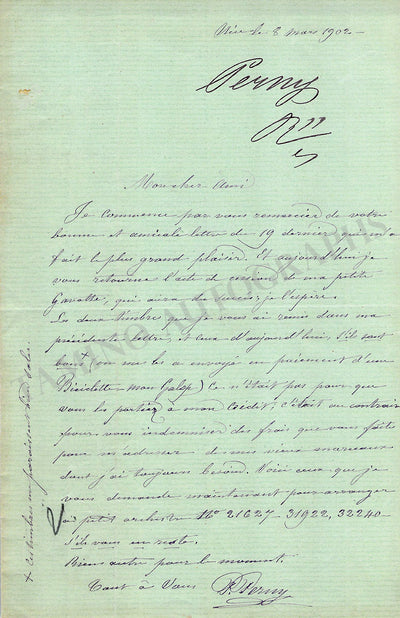 Nice le 8 mars 1902
Perny
Mon cher Ami
Je commence par vous remercier de votre
bonne et amicale lettre du 19 dernier, qui m'a
fait le plus grand plaisir. Et aujourd'hui je
vous retourne l'acte de cession de ma petite
Gavotte, qui aura du succès, je l'espère.
Les deux timbre que je vous ai remis dans ma
précédente lettre, et ceux d'aujourd'hui, s'ils sont
bons, on me les a envoyé en paiement d'une
Bicyclette (mon Galop) Ce n'était pas pour que
vous les portiez à mon crédit, c'était au contraire
pour vous indemniser des frais que vous faite
pour m'adresser de mes vieux morceaux
dont j'ai toujours besoin. Voici ceux que je
vous demande maintenant pour arranger
à petit orchestre Nos 21627 - 31922, 32240 -
s'ils vous en reste.
Rien autre pour le moment.
Tout à Vous P. Perny
+ Ces timbres me paraissent d'Italie.
TAMINO AUTOGRAPHS